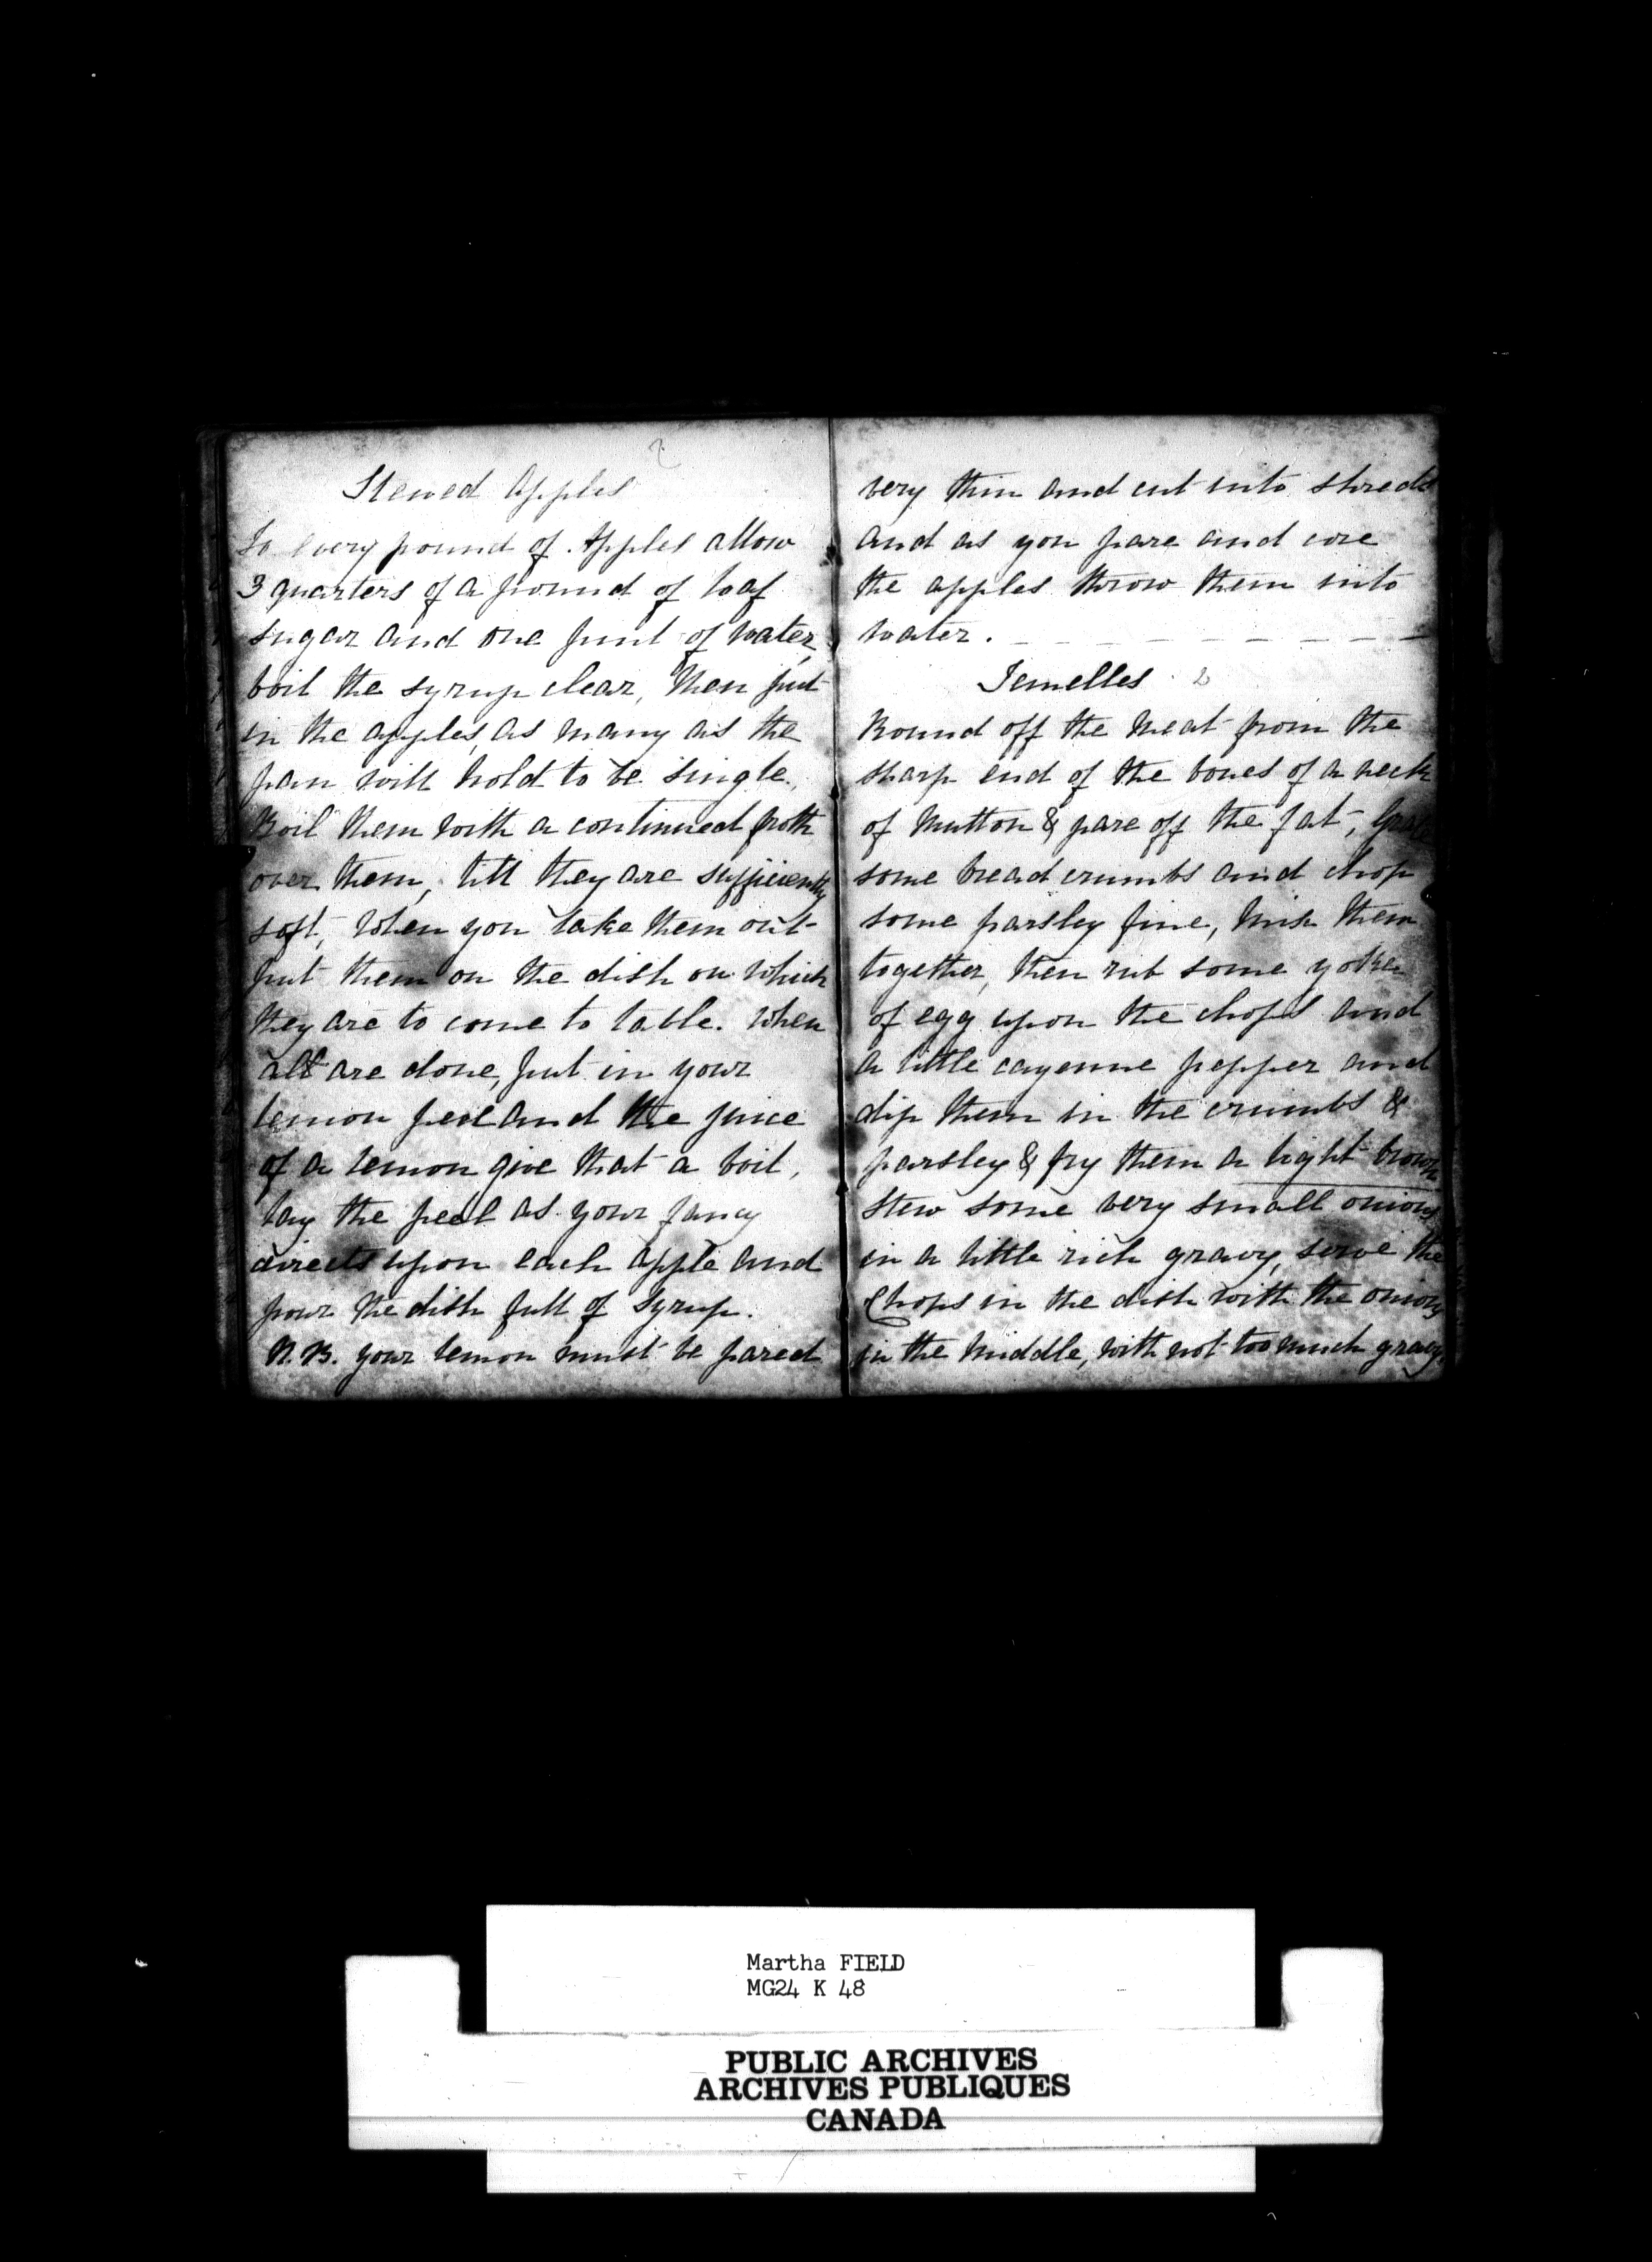 2
Stewed Apples
To every pound of Apples allow
3 quarters of a pound of loaf
sugar and one pint of water,
boil the syrup clear, then put
in the apples, as many as the
pan will hold to be single.
Boil them with a continued froth
over them, till they are sufficiently
soft, when you take them out
put them on the dish on which
they are to come to table. When
all are done, put in your
lemon peel and the juice
of a lemon give that a boil,
lay the peel as your fancy
directs upon each apple and
pour the dish full of syrup.
N.B. your lemon must be pared
very thin and cut into shreds
and as you pare and core
the apples throw them into
water.
Jemelles 2
Round off the meat from the
sharp end of the bones of a neck
of Mutton & pare off the fat, Grate
some bread crumbs and chop
some parsley fine, mix them
together, then rub some yolke
of egg upon the chops and
a little cayenne pepper and
dip them in the crumbs &
parsley & fry them a light brown
Stew some very small onions
in a little rich gravy, serve the
Chops in the dish with the onions
in the middle, with not too much gravy.
Martha FIELD
MG24 K 48
PUBLIC ARCHIVES
ARCHIVES PUBLIQUES
CANADA